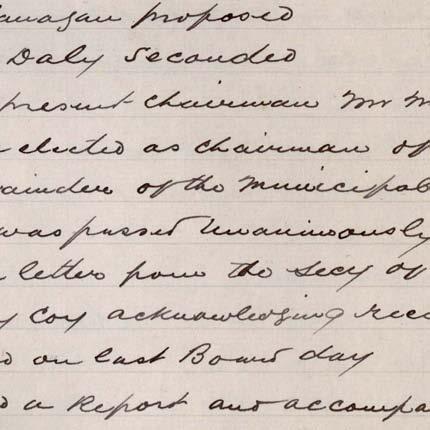 lanagan proposed
Daly Seconded
present chairman Mr M
elected as chairman of
ainder of the Municipal
was passed Unanimously
letter from the Secy of
y Coy acknowledging rece
d on last Board day
d a Report and accompa